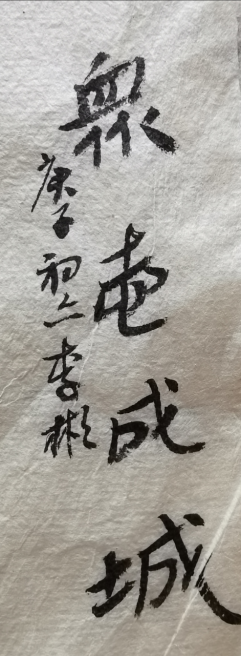 眾志成城
庚子初六李彬